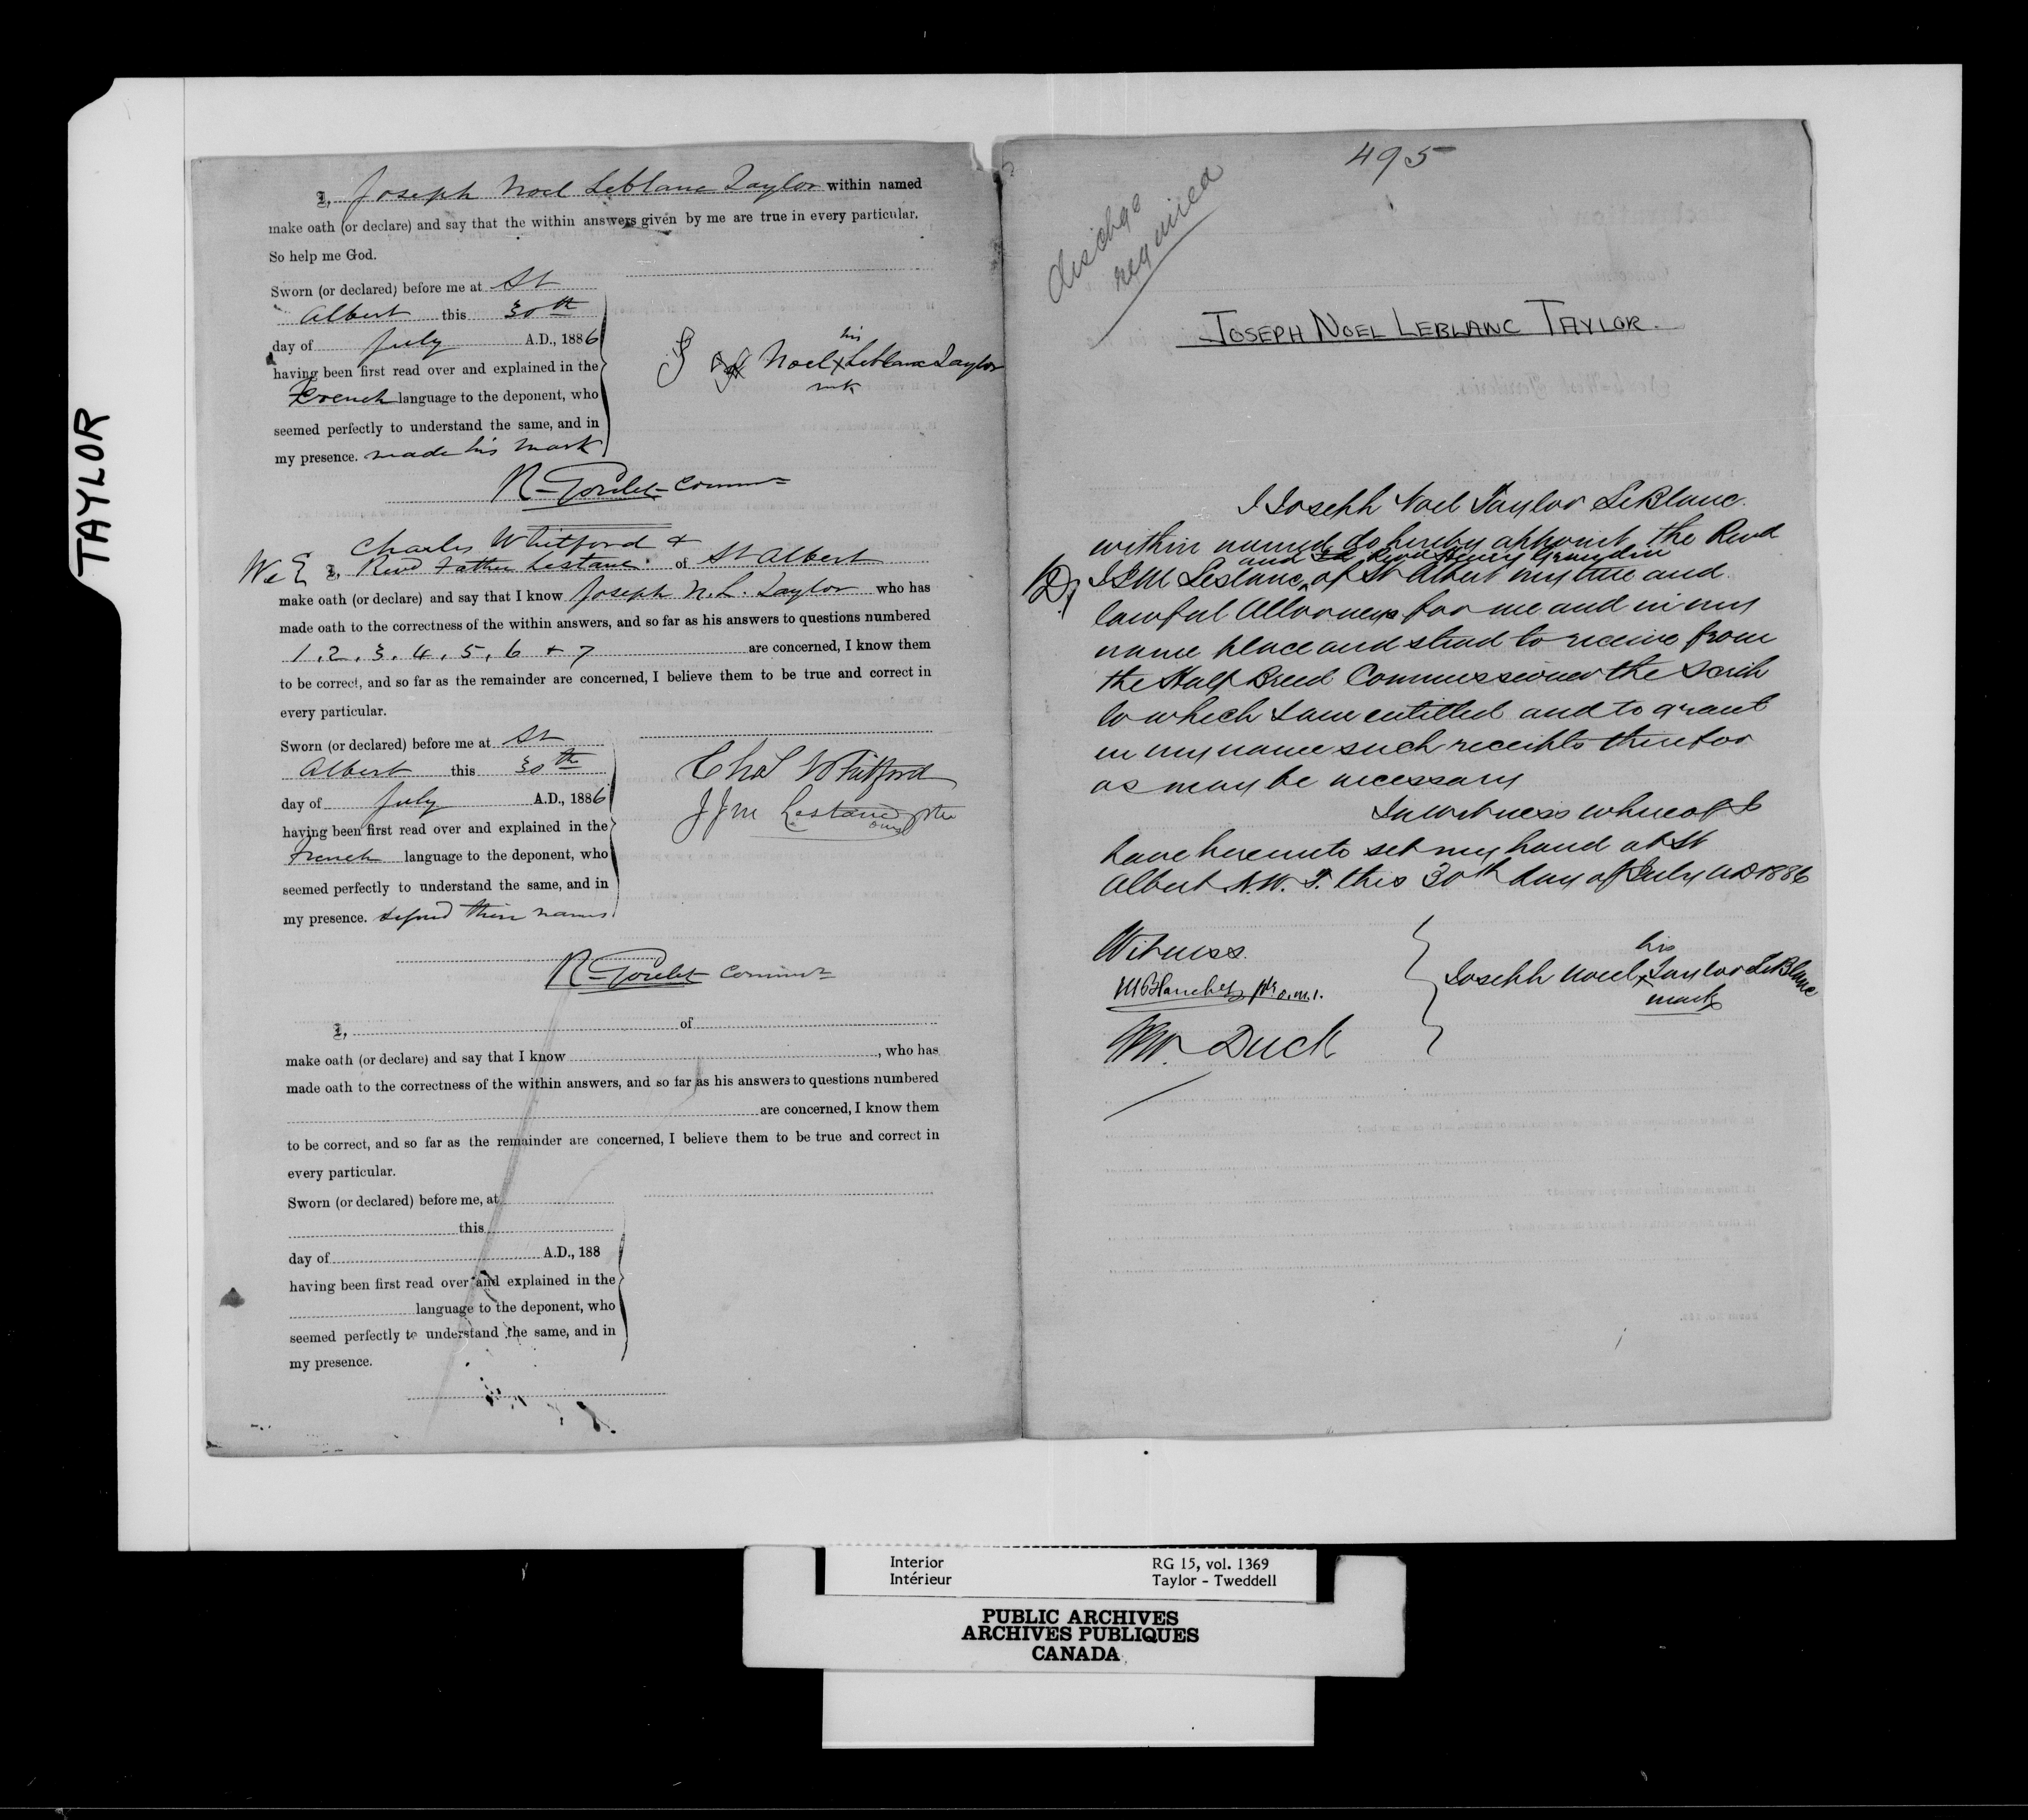 TAYLOR
I, Joseph Noel Leblanc Taylor within named
make oath (or declare) and say that the within answers given by me are true in every particular.
So help me God.
Sworn (or declared) before me at St
Albert this 30th
day of July A.D., 1886
having been first read over and explained in the
French language to the deponent, who
seemed perfectly to understand the same, and in
my presence. made his mark
his
J Noel X Leblanc Taylor
mk
R. Goulet Commr
Charles Whitford +
We I, Revd Father Lestanc of St Albert
make oath (or declare) and say that I know Joseph N. L. Taylor who has
made oath to the correctness of the within answers, and so far as his answers to questions numbered
1, 2, 3, 4, 5, 6 + 7 are concerned, I know them
to be correct, and so far as the remainder are concerned, I believe them to be true and correct in
every particular.
Sworn (or declared) before me at St
Albert this 30th
day of July A.D., 1886
having been first read over and explained in the
French language to the deponent, who
seemed perfectly to understand the same, and in
my presence. signed their names
Chas Whitford
J J M Lestanc ptre
omi
R. Goulet Commr
I, of
make oath (or declare) and say that I know , who has
made oath to the correctness of the within answers, and so far as his answers to questions numbered
are concerned, I know them
to be correct, and so far as the remainder are concerned, I believe them to be true and correct in
every particular.
Sworn (or declared) before me, at
this
day of A.D., 188
having been first read over and explained in the
language to the deponent, who
seemed perfectly to understand the same, and in
my presence.
495
dischge
required
JOSEPH NOEL LEBLANC TAYLOR.
I Joseph Noel Taylor LeBlanc
within named do hereby appoint the Revd
and Revd Henry Grandin
J.J.M Lestanc, of St Albert my true and
lawful Attorneys for me and in my
name place and stead to receive from
the Half Breed Commissioner the Scrip
to which I am entitled and to grant
in my name such receipts therefor
as may be necessary
In witness whereof I
have hereunto set my hand at St
Albert N.W.T. this 30th day of July AD 1886
Witness.
M Blanchet ptr o.m.i.
Wm Duck
his
Joseph Noel X Taylor LeBlanc
mark
Interior
Intérieur
RG 15, vol. 1369
Taylor - Tweddell
PUBLIC ARCHIVES
ARCHIVES PUBLIQUES
CANADA